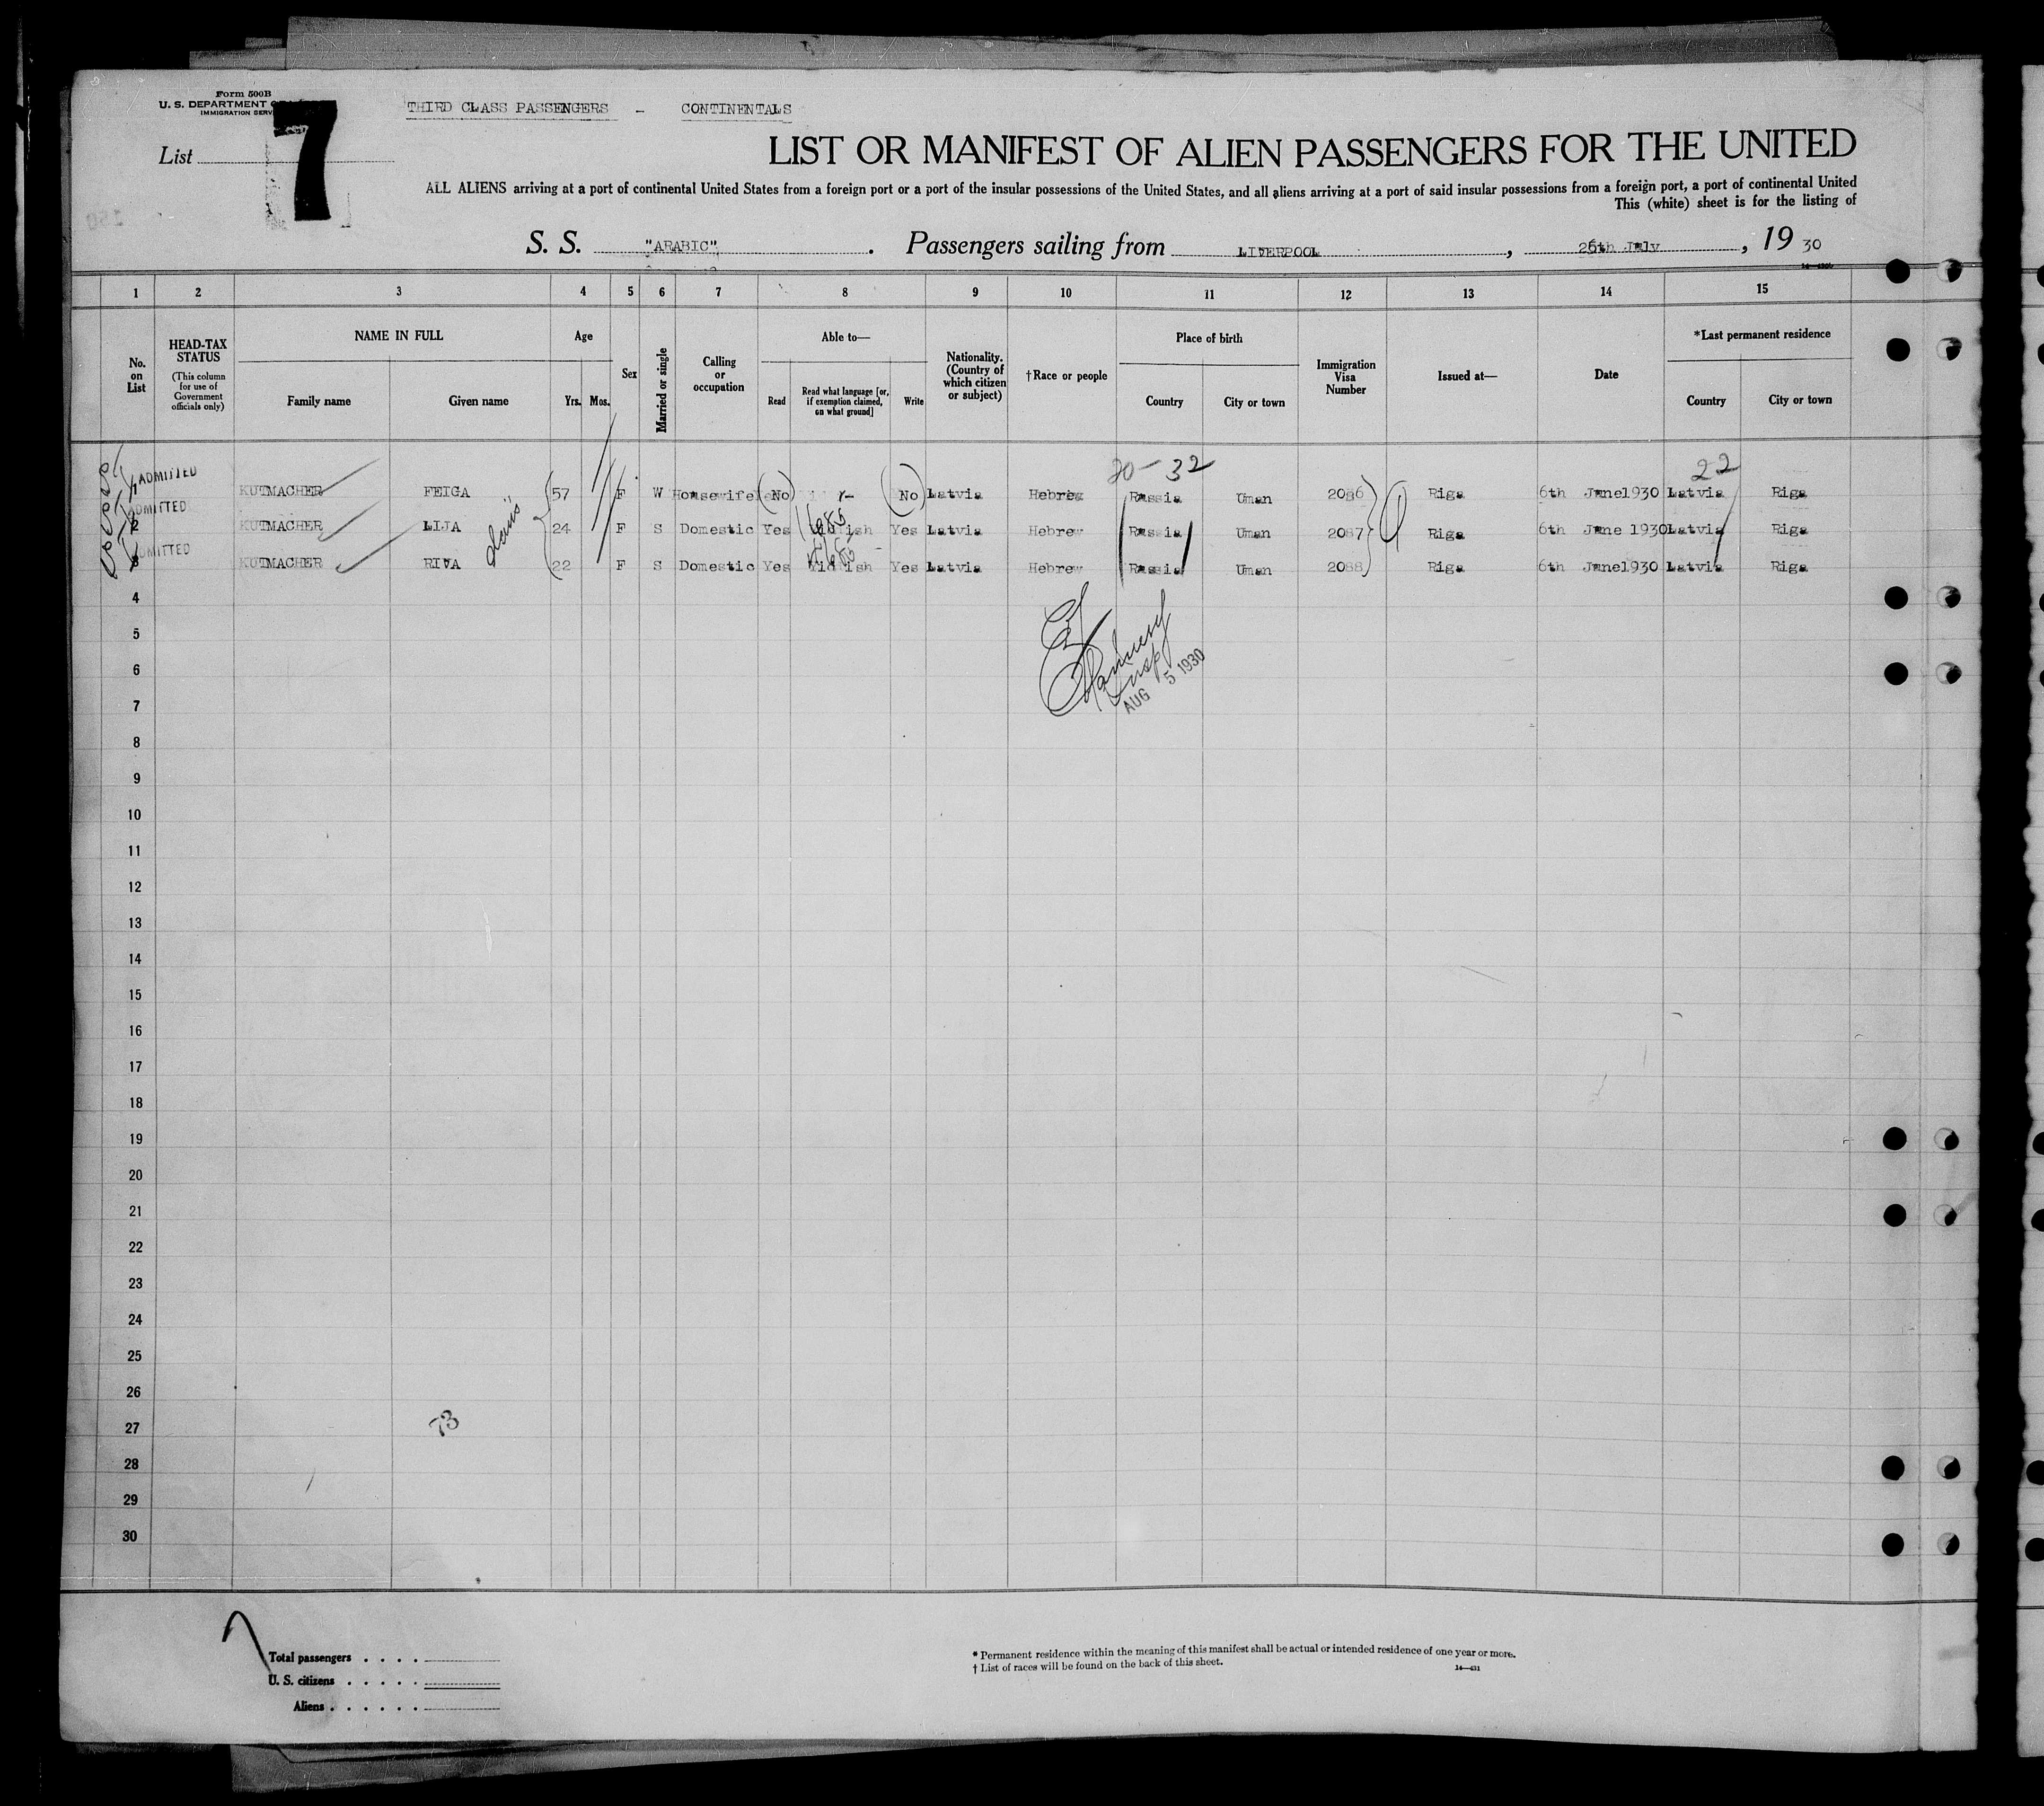 Form 500B
U. S. DEPARTMENT
IMMIGRATION SERV
List
7
THIRD CLASS PASSENGERS - CONTINENTALS
LIST OR MANIFEST OF ALIEN PASSENGERS FOR THE UNITED
ALL ALIENS arriving at a port of continental United States from a foreign port or a port of the insular possessions of the United States, and all aliens arriving at a port of said insular possessions from a foreign port, a port of continental United
This (white) sheet is for the listing of
S. S. "ARABIC". Passengers sailing from LIVERPOOL, 26th July, 19 30
1 2 3 4 5 6 7 8 9 10 11 12 13 14 15
No. on List
HEAD-TAX STATUS (This column for use of Government officials only)
NAME IN FULL
Family name Given name
Age
Yrs. Mos.
Sex
Married or single
Calling or occupation
Able to—
Read Read what language [or, if exemption claimed, on what ground] Write
Nationality. (Country of which citizen or subject)
†Race or people
Place of birth
Country City or town
Immigration Visa Number
Issued at—
Date
*Last permanent residence
Country City or town
20-32 22
1 ADMITTED KUTMACHER FEIGA 57 F W Housewife No No Latvia Hebrew Russia Uman 2086 Riga 6th June 1930 Latvia Riga
2 ADMITTED KUTMACHER LIJA 24 F S Domestic Yes Yiddish Yes Latvia Hebrew Russia Uman 2087 Riga 6th June 1930 Latvia Riga
3 ADMITTED KUTMACHER RIVA 22 F S Domestic Yes Yiddish Yes Latvia Hebrew Russia Uman 2088 Riga 6th June 1930 Latvia Riga
4
5
6
Insp
AUG 5 1930
7
8
9
10
11
12
13
14
15
16
17
18
19
20
21
22
23
24
25
26
27
73
28
29
30
Total passengers . . . .
U. S. citizens . . . . .
Aliens . . . . . .
* Permanent residence within the meaning of this manifest shall be actual or intended residence of one year or more.
† List of races will be found on the back of this sheet.
14—431